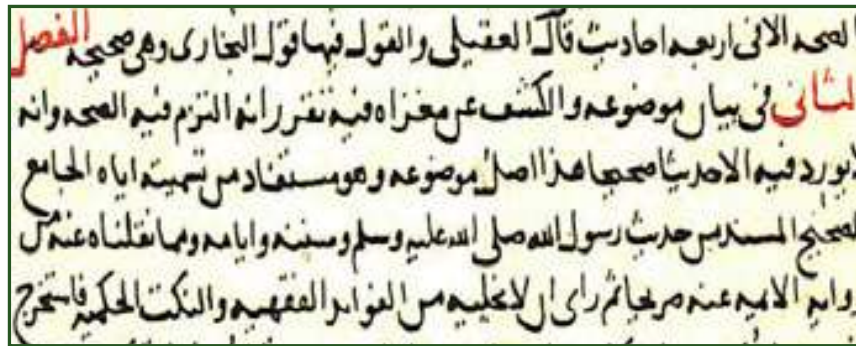 الصحه الا فى اربعه احاديث قال العقيلى والقول فيها قول البخارى وهى صحيحه الفصل
الثانى فى بيان موضوعه والكشف عن مغزاه فيه تقرر انه التزم فيه الصحه وانه
لا يورد فيه الا حديثا صحيحا هذا اصل موضوعه وهو مستفاد من تسميته اياه الجامع
الصحيح المسند من حديث رسول الله صلى الله عليه وسلم وسننه وايامه ومما نقلناه عنه من
روايه الايمه عنه صريحا ثم راى ان لا يخليه من الفوايد الفقهيه والنكت الحكميه فاستخرج